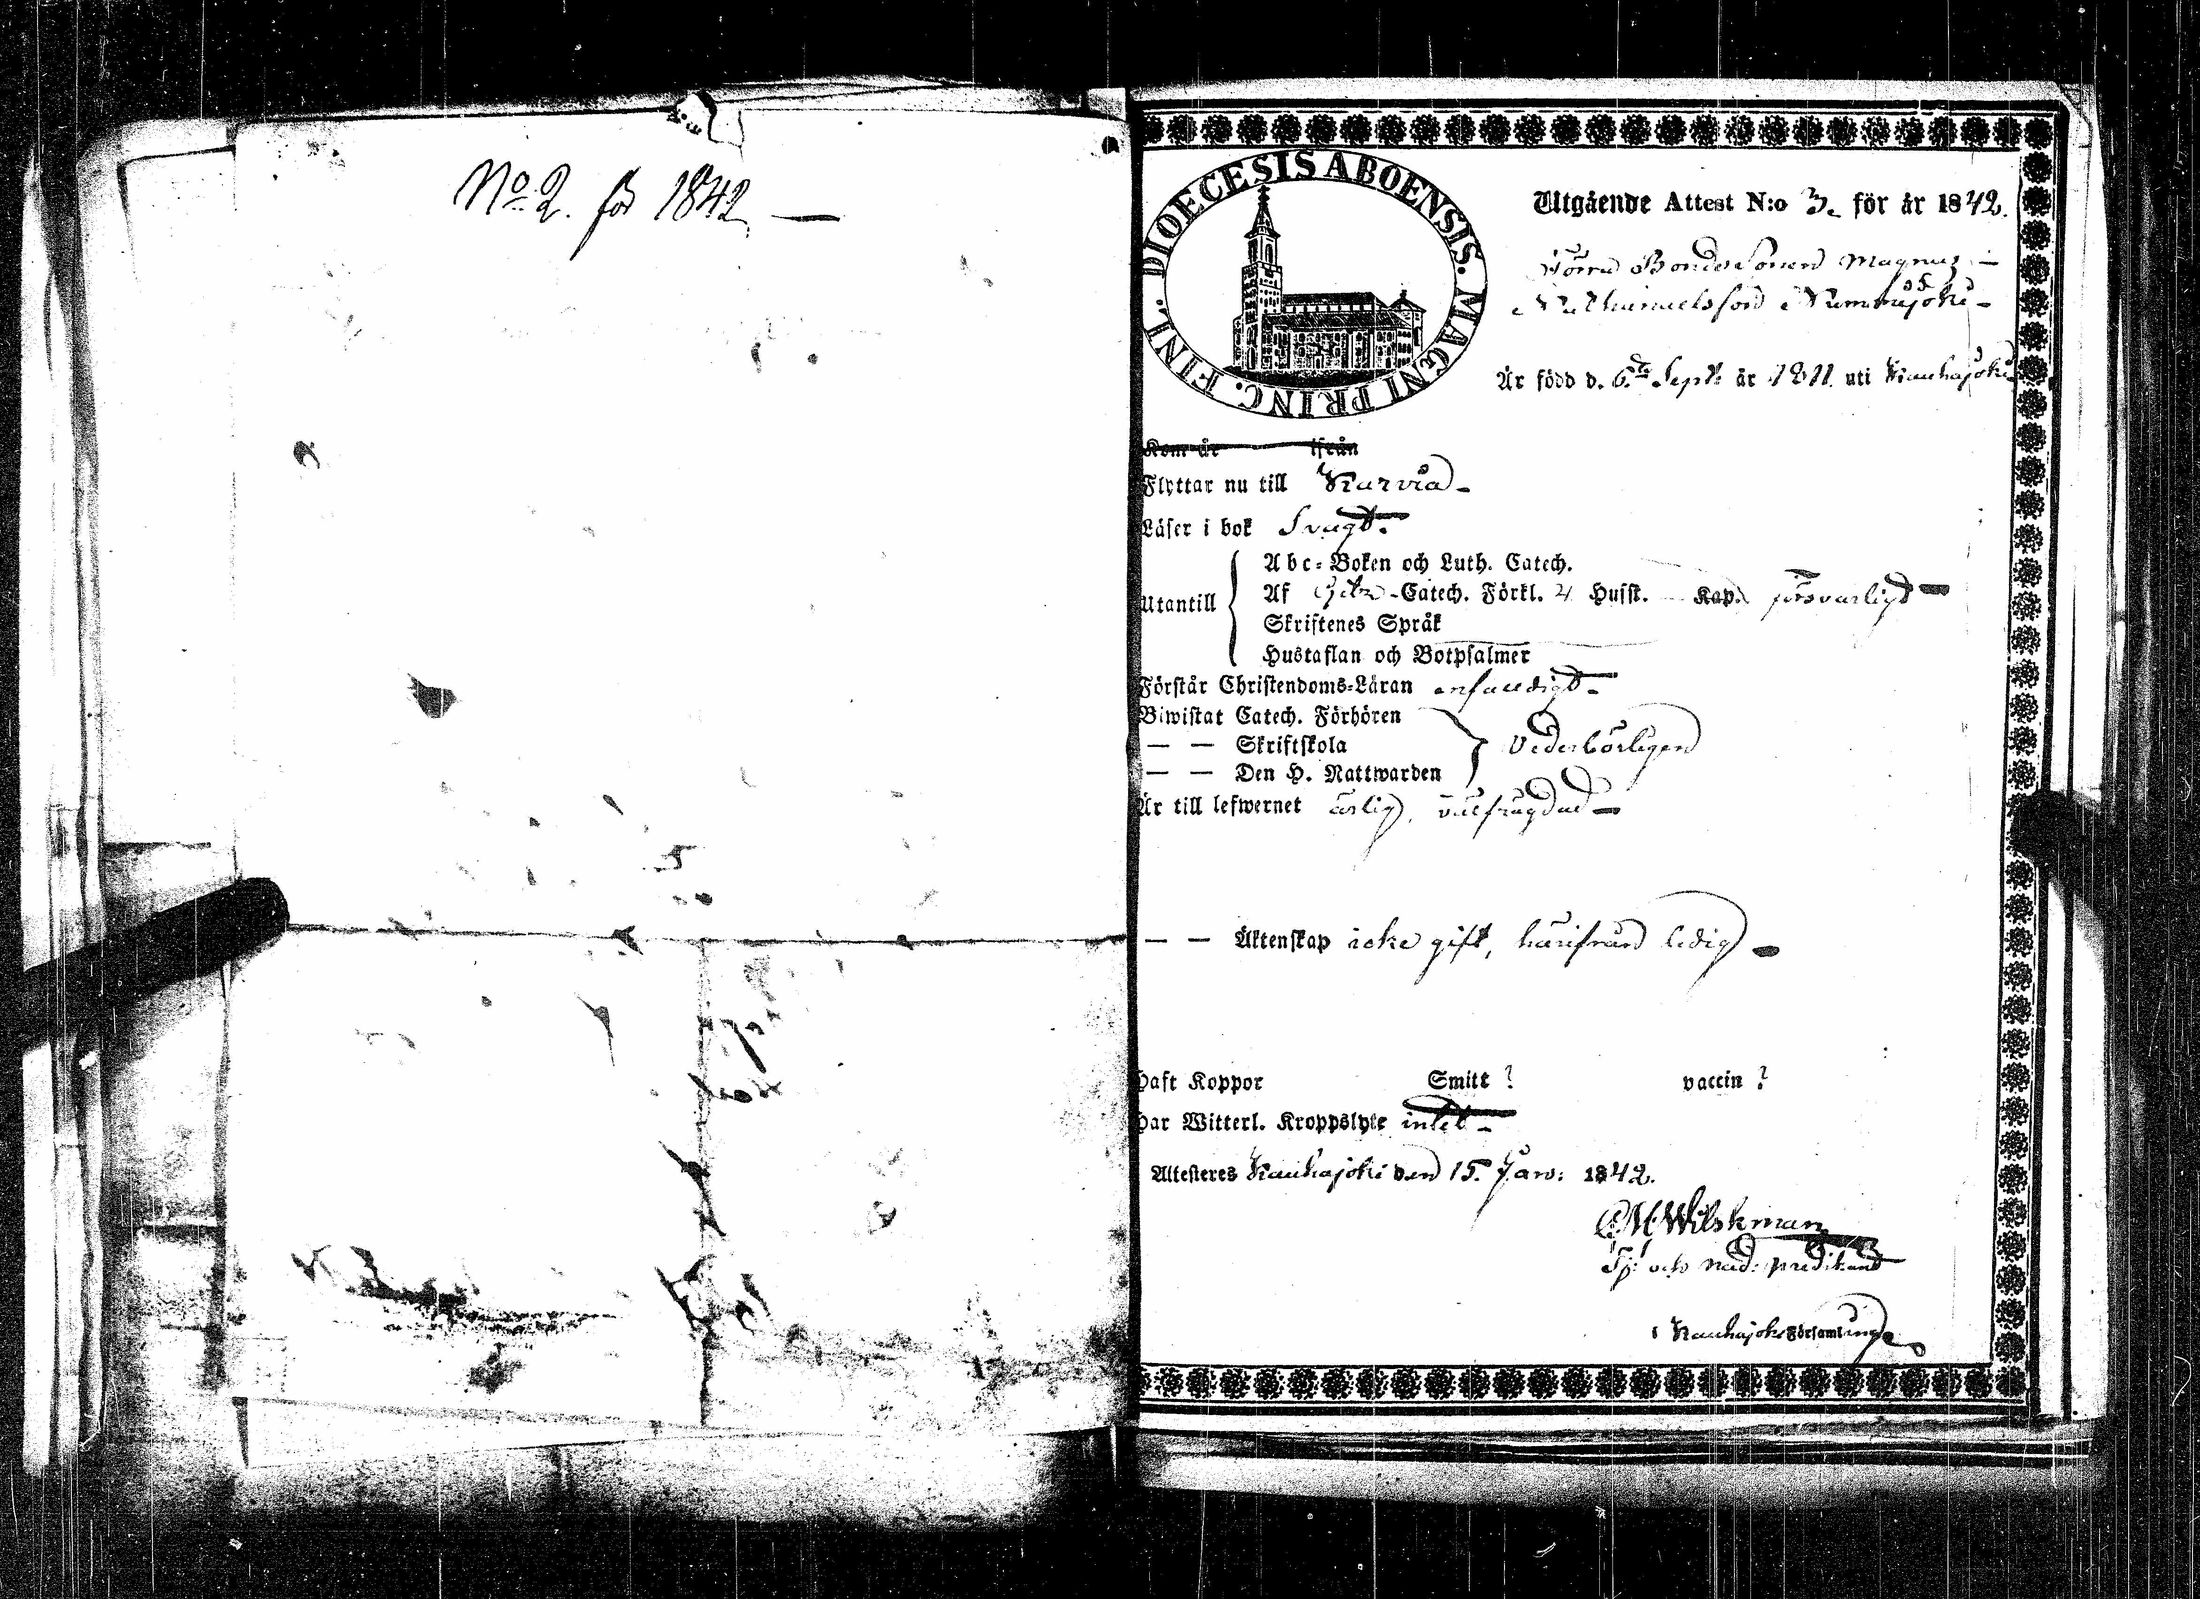 No 2. för 1842 —
DIOECESIS ABOENSIS. MAGNI PRINC. FINL.
Utgående Attest N:o 3. för år 1842.
Förra Bondesonen Magnus —
Nathanaelsson Nummijoki —
Är född d. 6te Sept: år 1811 uti Kauhajoki
Kom år ifrån
Flyttar nu till Karvia —
Läser i bok Svagt.
Utantill
Abc-Boken och Luth. Catech.
Af Catech. Förkl. 4 Husst. Kap. försvarligt —
Skriftenes Språk
Hustaflan och Botpsalmer
Förstår Christendoms-Läran enfaldigt —
Biwistat Catech. Förhören
— — Skriftskola
Vederbörligen
— — Den H. Nattwarden
Är till lefwernet ärlig, välfrägdad —
— — Äktenskap icke gift, härifrån ledig —
Haft Koppor Smitt ? vaccin ?
Har Witterl. Kroppslyte intet —
Attesteres Kauhajoki den 15. Janu: 1842.
Wilskman
Tj: och näd: predikant
i Kauhajoki Församlinge